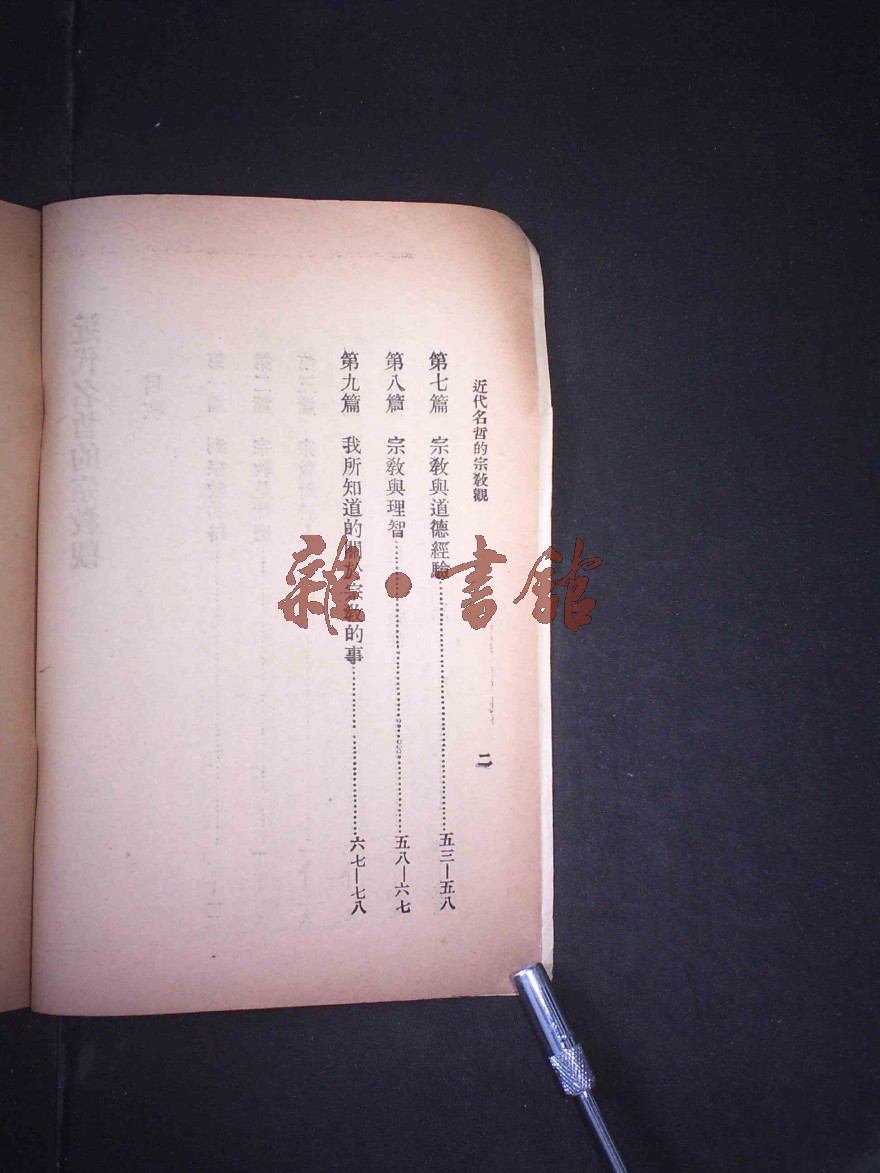 近代名哲的宗教觀
二
第七篇 宗教與道德經驗……五三—五八
第八篇 宗教與理智……五八—六七
第九篇 我所知道的關於宗教的事……六七—七八
雜·書館